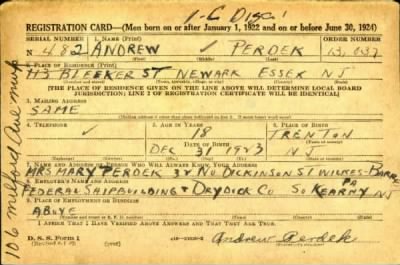 1-C Disc!
REGISTRATION CARD—(Men born on or after January 1, 1922 and on or before June 30, 1924)
SERIAL NUMBER 1. NAME (Print) ORDER NUMBER
N 482 ANDREW ✓ PERDEK 13,037
(First) (Middle) (Last)
2. PLACE OF RESIDENCE (Print)
113 BLEEKER ST NEWARK ESSEX NJ
(Number and street) (Town, township, village, or city) (County) (State)
[THE PLACE OF RESIDENCE GIVEN ON THE LINE ABOVE WILL DETERMINE LOCAL BOARD
JURISDICTION; LINE 2 OF REGISTRATION CERTIFICATE WILL BE IDENTICAL]
3. MAILING ADDRESS
SAME
[Mailing address if other than place indicated on line 2. If same insert word same]
4. TELEPHONE 5. AGE IN YEARS 6. PLACE OF BIRTH
✓ 18 TRENTON
DATE OF BIRTH
DEC 31 1923 NJ
7. NAME AND ADDRESS OF PERSON WHO WILL ALWAYS KNOW YOUR ADDRESS
MRS MARY PERDEK NO. DICKINSON ST WILKES-BARRE PA
8. EMPLOYER'S NAME AND ADDRESS
FEDERAL SHIPBUILDING & DRYDOCK CO SO KEARNY NJ
9. PLACE OF EMPLOYMENT OR BUSINESS
ABOVE
I AFFIRM THAT I HAVE VERIFIED ABOVE ANSWERS AND THAT THEY ARE TRUE.
D. S. S. FORM 1
Andrew Perdek
106 Milford Ave